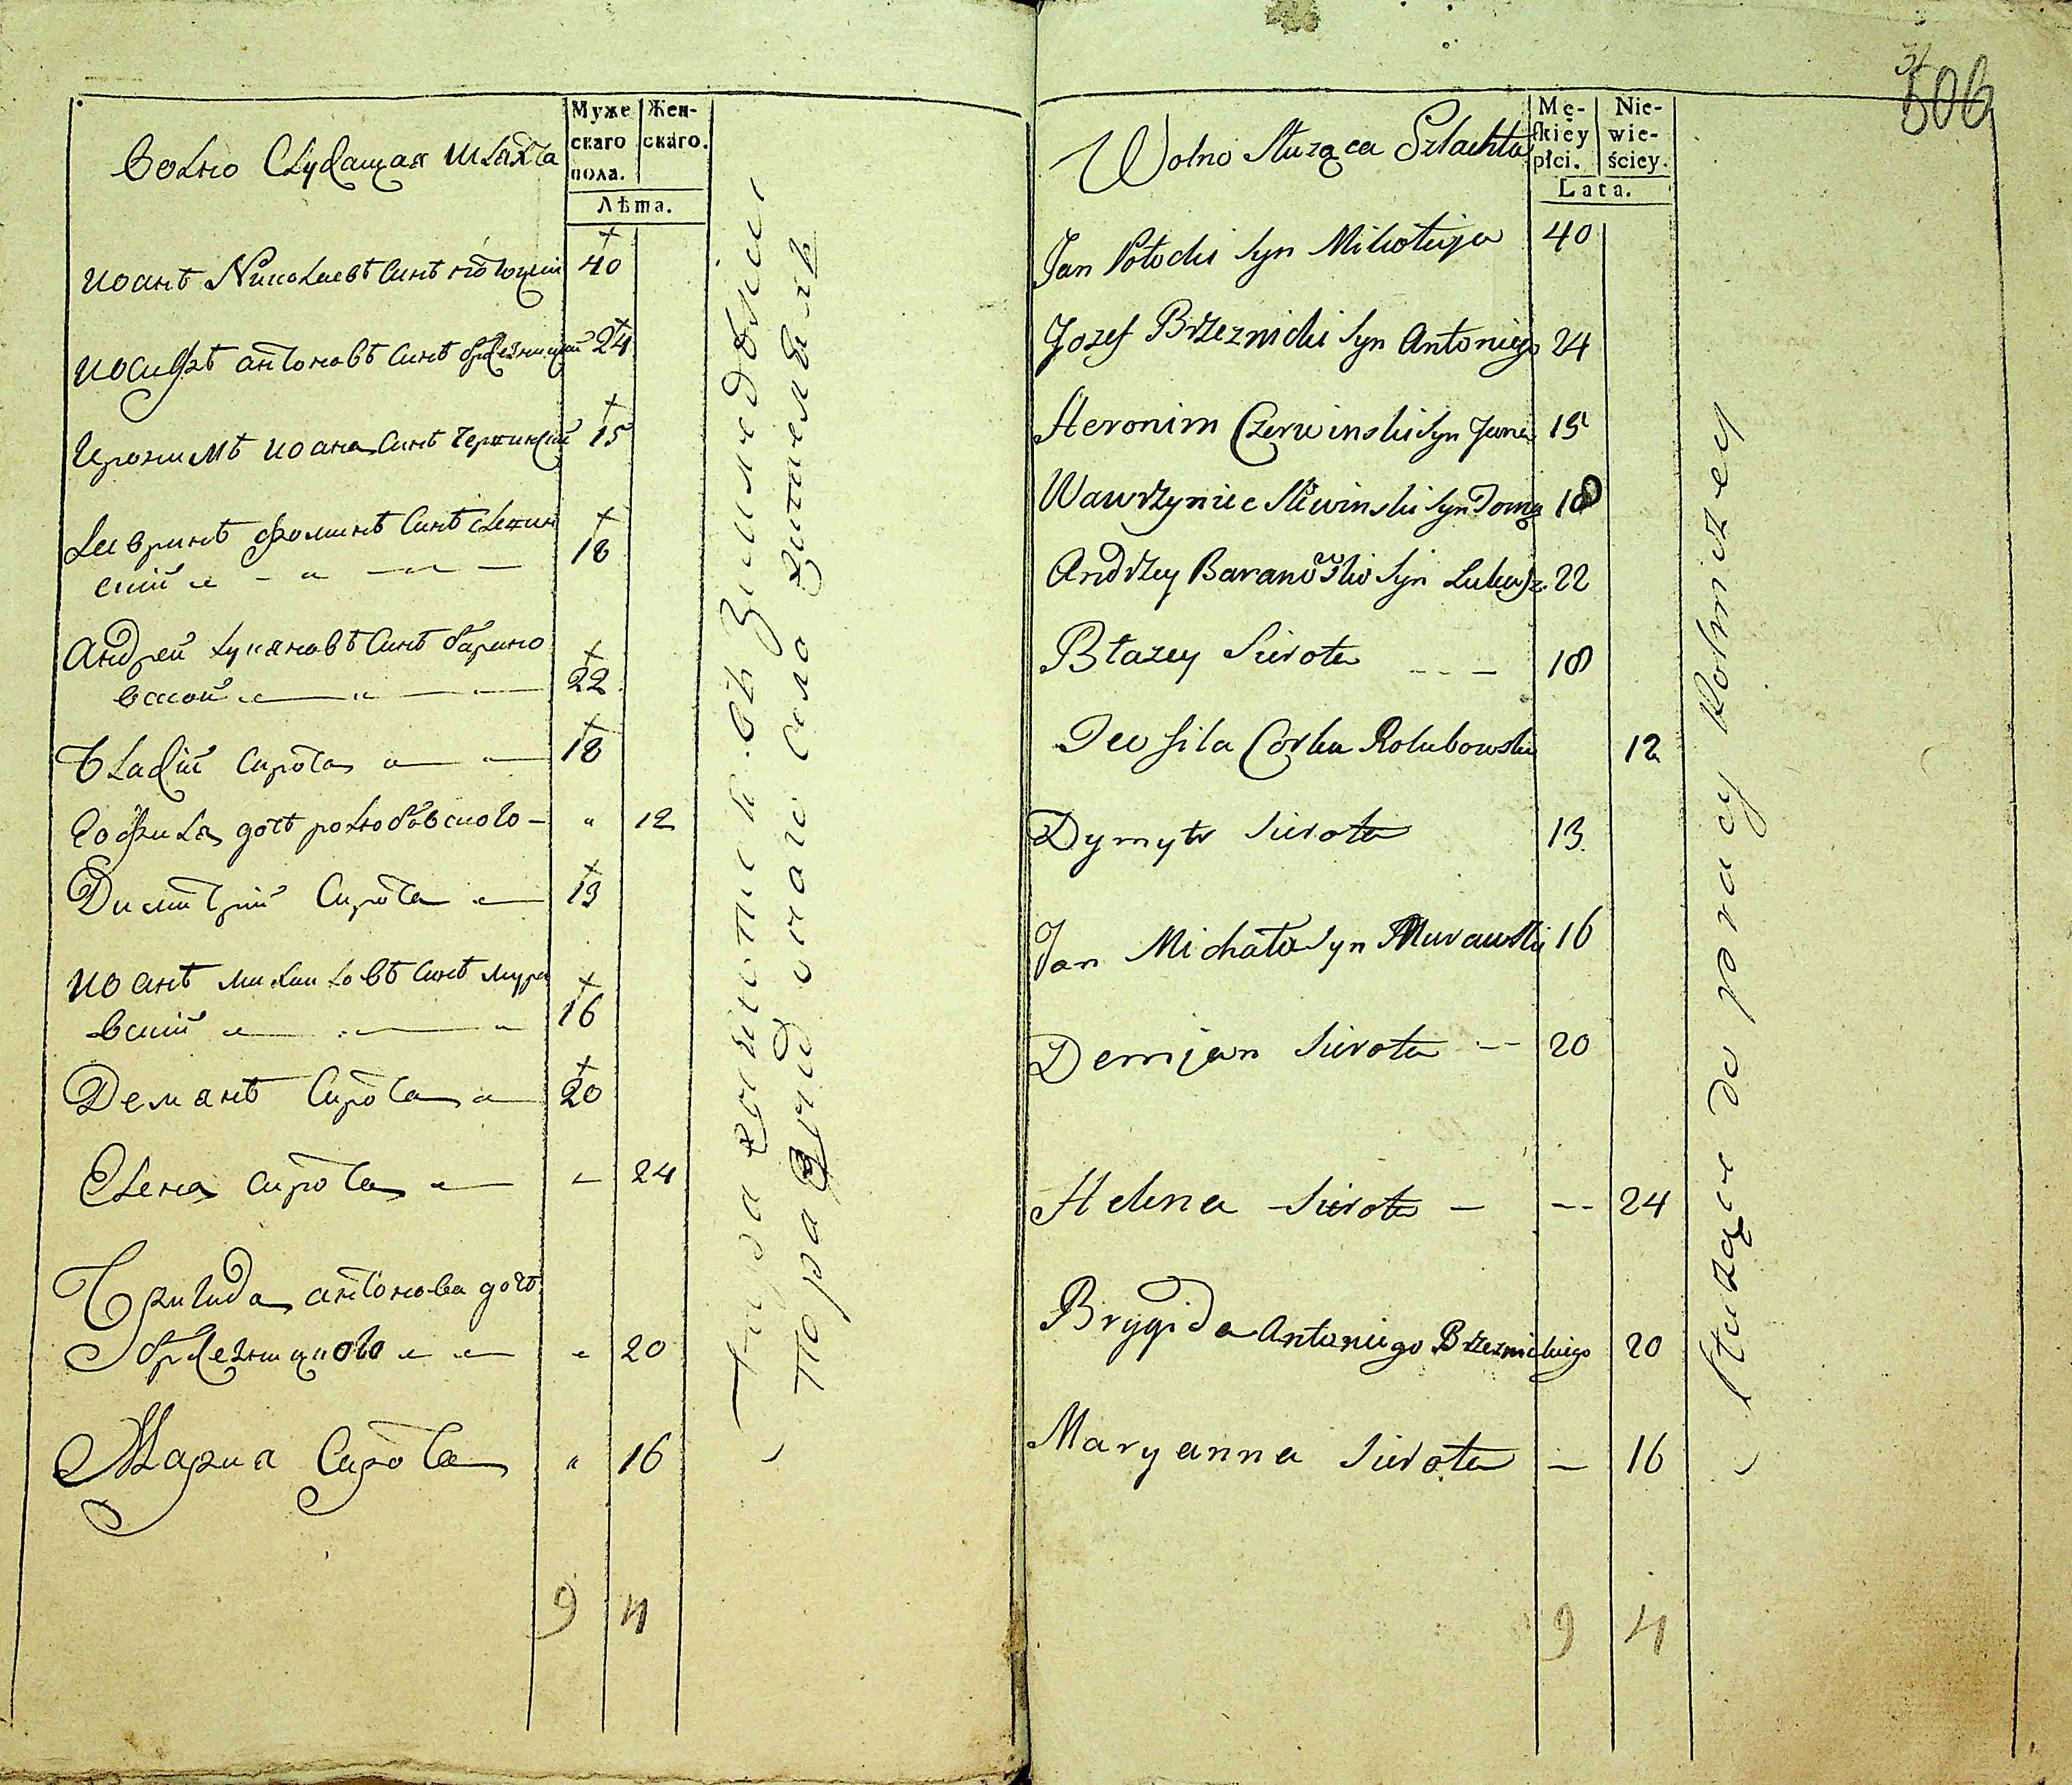 Волно Служащая шляхта
Муже
скаго
пола.
Жен-
скаго.
Лѣта.
иоанъ Николаевъ синъ потоцкий 40
иосифъ антоновъ синъ бржезницкий 24
Иеронимъ иоана синъ Червинский 15
Лавринъ фоминъ синъ слевин
ский 18
Андрей Лукяновъ синъ барано
вской 22
Бладий сирота 18
Софила дочъ ролюбовского 12
Димитрий Сирота 13
иоанъ михаиловъ синъ мура
вский 16
Демянъ Сирота 20
Елена сирота 24
Бригида антонова дочъ
бржезницкого 20
Мариа Сирота 16
9 4
31
506
Wolno Służąca Szlachta
Mę-
skiey
płci.
Nie-
wie-
ściey.
Lata.
Jan Potocki syn Mikołaja 40
Jozef Brzeznicki syn Antoniego 24
Heronim Czerwinski syn Jana 15
Wawrzyniec Slewinski syn Toma 18
Andrzey Baranowski syn Lukasz. 22
Błazey Sierota 18
Teofila Corka Rolubowsku 12
Dymytr Sierota 13
Jan Michała syn Murawski 16
Demjan Sierota 20
Helena Sierota 24
Brygida Antoniego Brzeznickiego 20
Maryanna Sierota 16
9 4
Służące do pracy Rolniczey